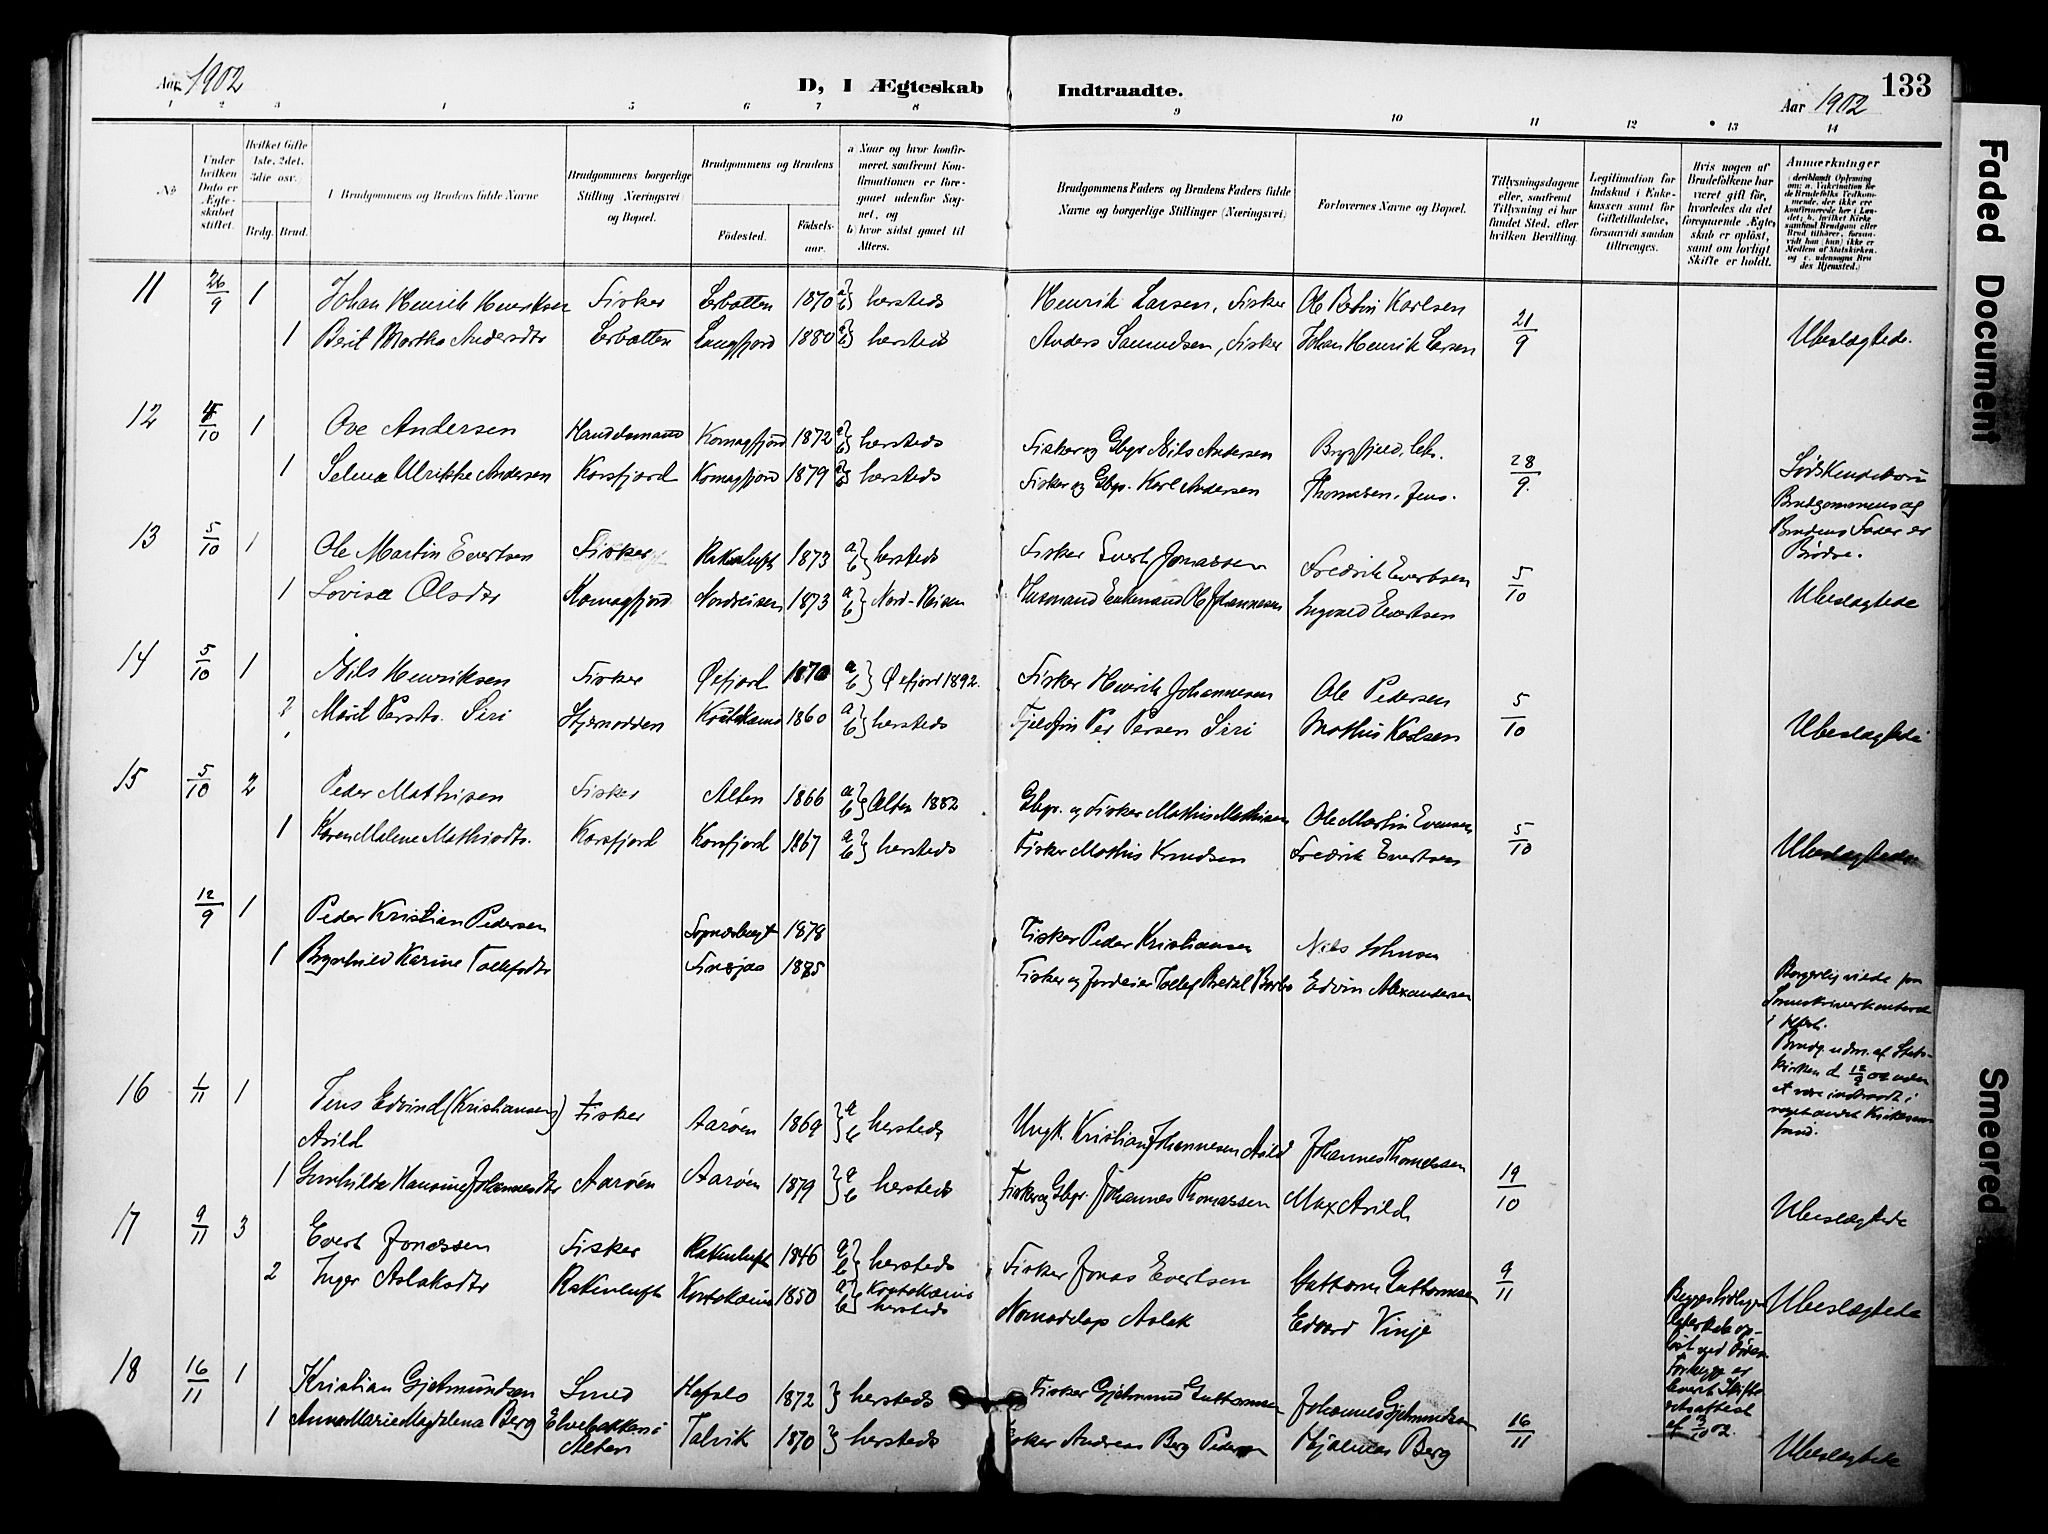 Aar 1902
D, I Ægteskab Indtraadte.
Aar 1902
133
Faded Document
Smeared
1 2 3 4 5 6 7 8 9 10 11 12 13 14
No
Under hvilken Dato er Ægteskabet stiftet.
Hvilket Gifte 1ste. 2det. 3die osv.
Brdg. Brud.
Brudgommens og Brudens fulde Navne
Brudgommens borgerlige Stilling (Næringsvei) og Bopæl.
Brudgommens og Brudens
Födested. Födselsaar.
a Naar og hvor konfirmeret, saafremt Konfirmationen er foregaaet udenfor Sognet, og
b hvor sidst gaaet til Alters.
Brudgommens Faders og Brudens Faders fulde Navne og borgerlige Stillinger (Næringsvei)
Forlovernes Navne og Bopæl.
Tillysningsdagene eller, saafremt Tillysning ei har fundet Sted, efter hvilken Bevilling.
Legitimation for Indskud i Enkekassen samt for Giftetilladelse, forsaavidt saadan tiltrænges.
Hvis nogen af Brudefolkene har været gift før, hvorledes da det foregaaende Ægteskab er opløst, samt om lovligt Skifte er holdt.
Anmærkninger
11 26/9 1 Johan Henrik Henriksen Fisker Lerbotten 1870 a b } hersteds Henrik Larsen, Fisker Ole Karlsen
1 Berit Martha Andersdtr Lerbotten Langfjord 1880 a b } hersteds Anders Samuelsen, Fisker Johan Henrik Larsen 21/9 Ubeslægtede.
12 5/10 1 Ove Andersen Handelsmand Komagfjord 1872 a b } hersteds Fisker og Gbgr Nils Andersen
1 Selma Ulrikke Andersen Korsfjord Komagfjord 1879 a b } hersteds Fisker og Gbgr. Karl Andersen Thomasen, Jens. 28/9. Sødskendebørn
Brudgommens og
Brudens Fader er
Brødre.
13 5/10 1 Ole Martin Evertsen Fisker Rakenluft 1873 a b } hersteds Fisker Evert Jonassen Fredrik Evertsen
1 Lovise Olsdtr Komagfjord Nordreisen 1873 a b } Nord-Reisen Ole Johannesen Ingvald Evertsen 5/10 Ubeslægtede
14 5/10 1 Nils Henriksen Fisker Øxfjord 1870 a b } Øxfjord 1892. Fisker Henrik Johannesen Ole Pedersen
2 Marit Persdtr. Siri Stjernodden Koutokeino 1860 a b } hersteds Fjeldfin Per Persen Siri Mathis Karlsen 5/10 Ubeslægtede
15 5/10 2 Peder Mathisen Fisker Alten 1866 a b } Alten 1882 Gbgr. og Fisker Mathis Mathisen Ole Martin Evensen
1 Karen Malene Mathisdtr. Korsfjord Korsfjord 1867 a b } hersteds Fisker Mathis Knudsen Fredrik Evertsen 5/10 Ubeslægtede
12/9 1 Peder Kristian Pedersen 1878 Fisker Peder Kristiansen Nils Johnsen
1 Brynhild Karine Tollefsdtr 1885 Fisker og Jordeier Tollef Edvin Alexandersen
Borgerlig viede paa
Sorenskriverkontoret
i Hfest.
Brudg. udm. af Stats-
kirken d. 12/9 02 uden
at være indtraadt i
noget andet Kirkesam-
fund.
16 1/11 1 Jens Edvind (Kristiansen) Fisker Aarøen 1869 } a b hersteds Ungk. Kristian Johannesen Arild Johannes Thomassen
Arild
1 Gunhilde Hansine Johannesdtr Aarøen Aarøen 1879 } a b hersteds Fisker og Gbgr. Johannes Thomassen Max Arild 19/10 Ubeslægtede
17 9/11 3 Evert Jonassen Fisker Rakenluft 1846 a b } hersteds Fisker Jonas Evertsen Guttorm Guttormsen 9/11
2 Inger Aslaksdtr Rakenluft Koutokeino 1850 a b } Koutokeino hersteds Nomadelap Aslak Edvard Vinje Ubeslægtede
Begges tidligere
Ægteskab op-
løst ved Døden
af 3/10 02.
18 16/11 1 Kristian Gjetmundsen Smed 1872 } hersteds Fisker Gjetmund Guttormsen Johannes Gjetmundsen
1 Anne Marie Magdalena Berg Elvebakken i Alten Talvik 1870 } hersteds Fisker Andreas Berg Pedersen Hjalmar Berg 16/11 Ubeslægtede